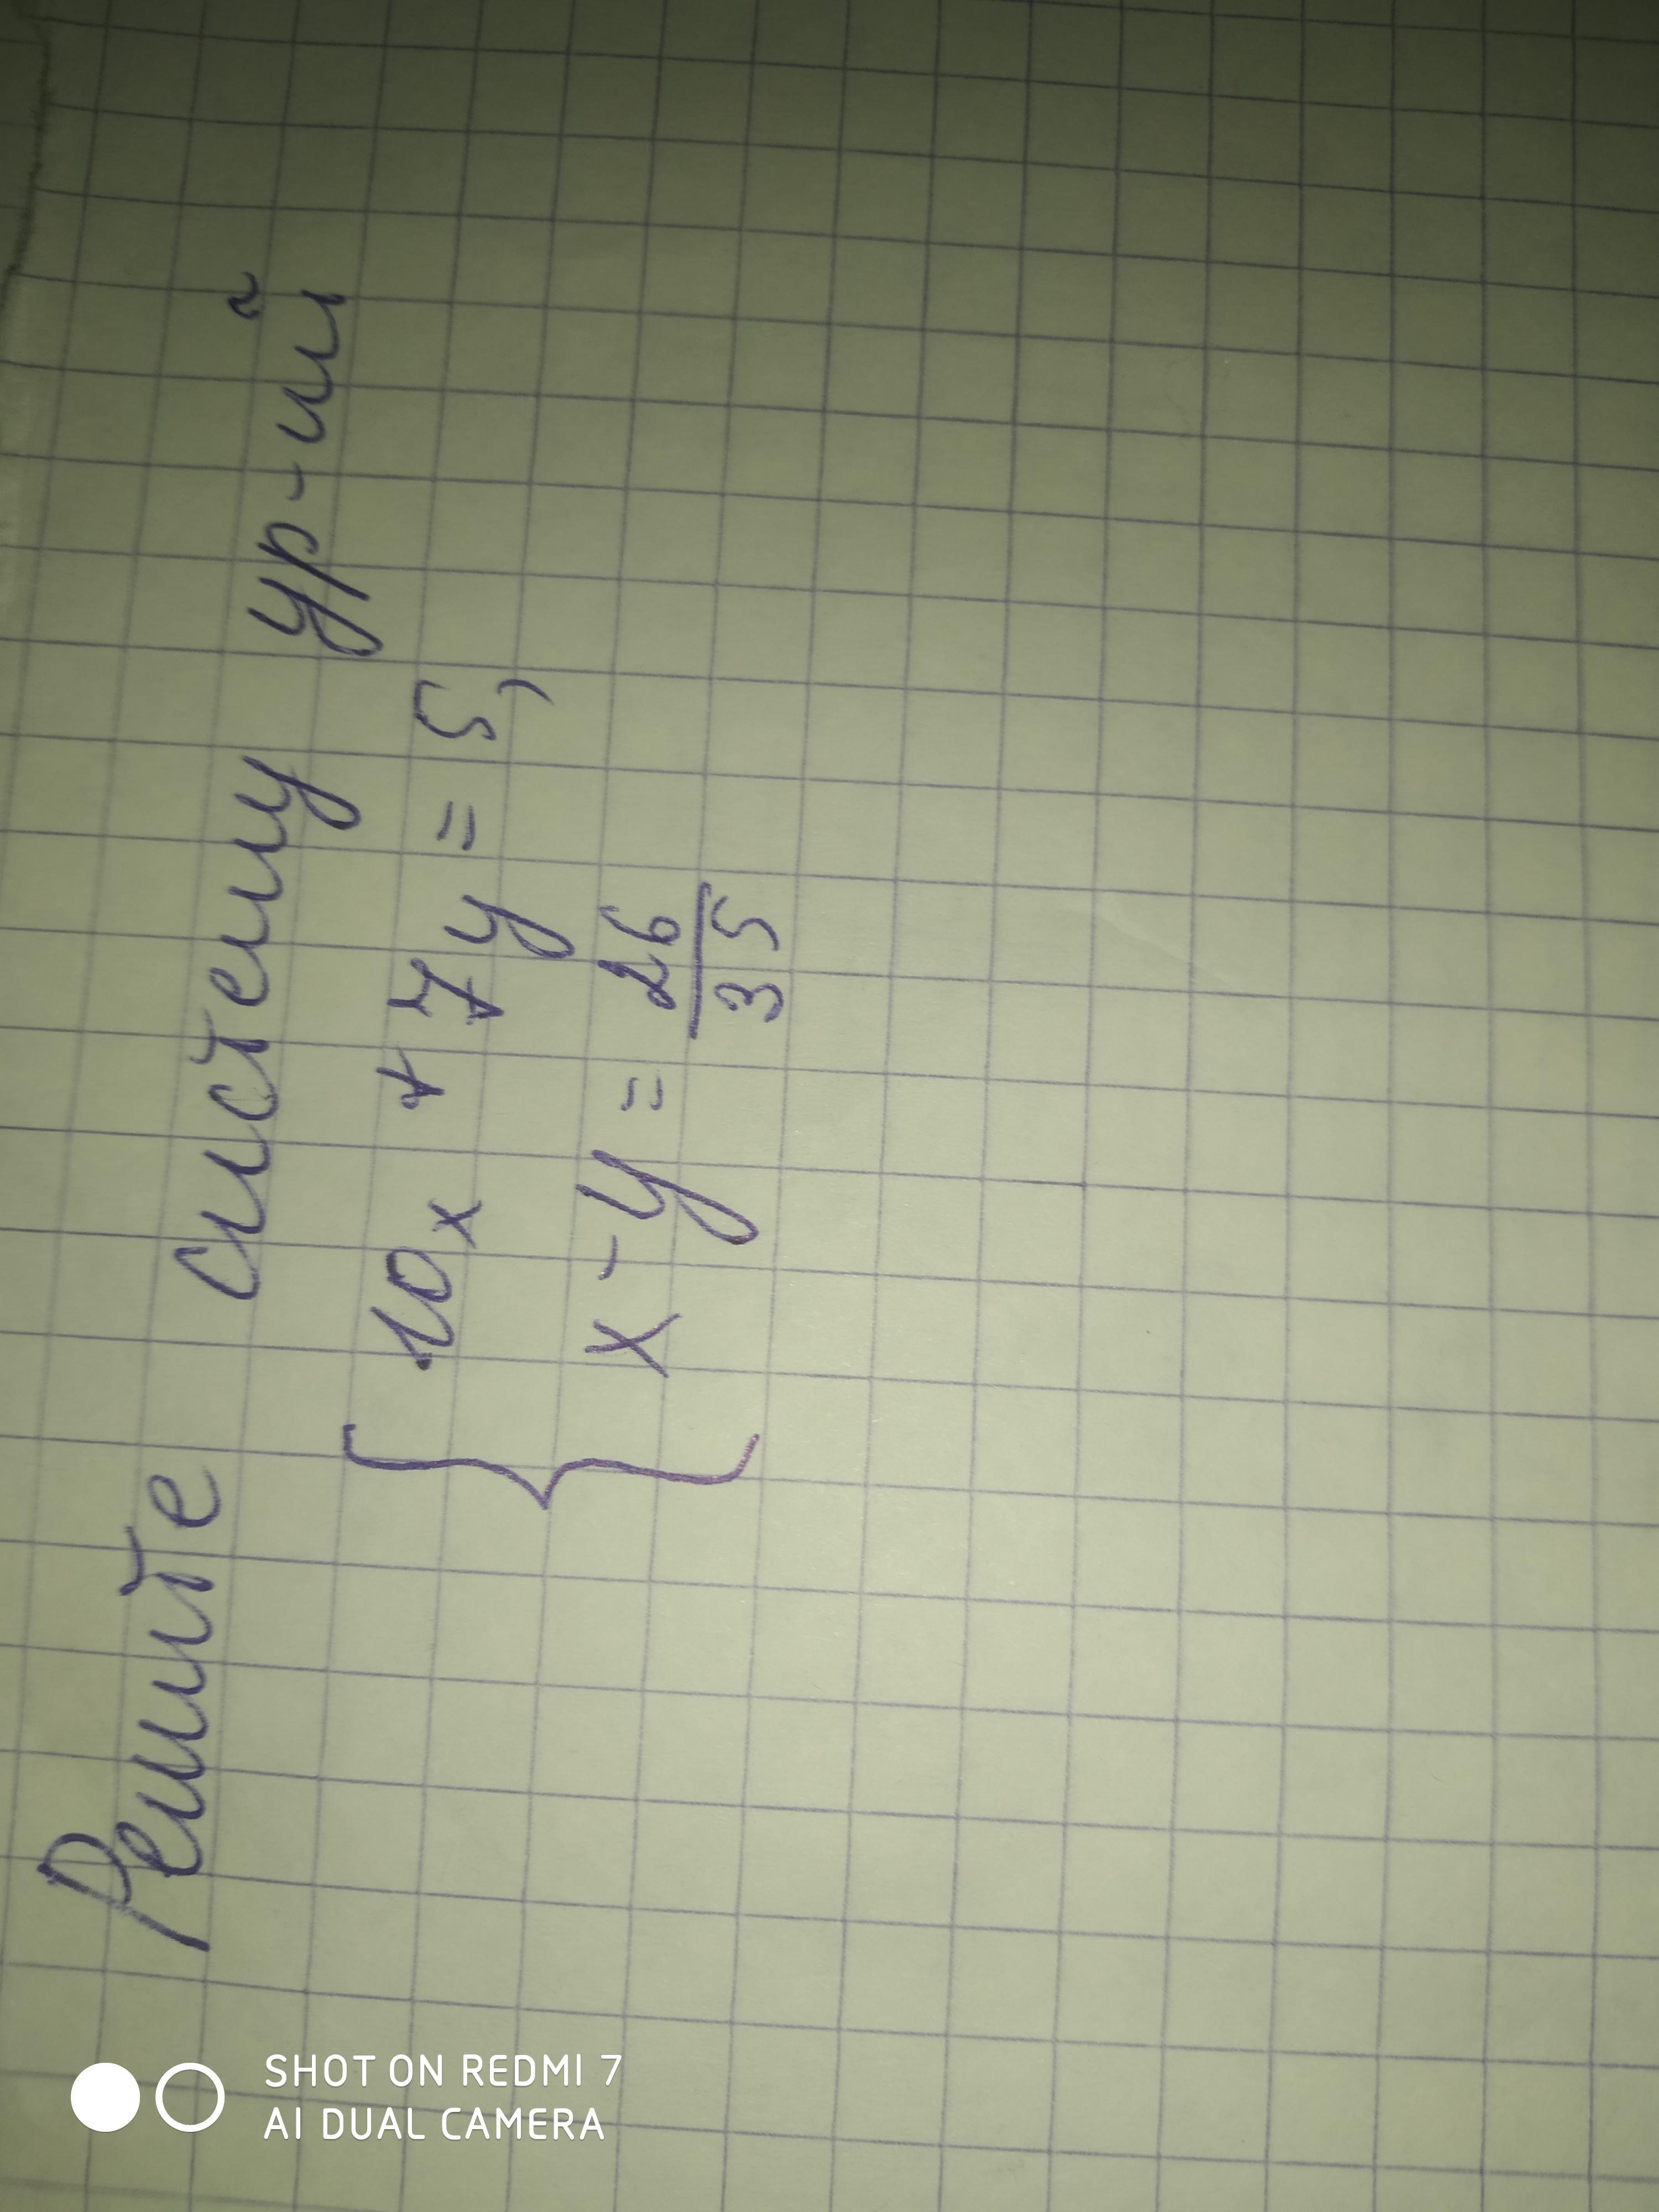 Решите систему ур-ий
{ 10x + 7y = 5,
x - y = 26/35
SHOT ON REDMI 7
AI DUAL CAMERA